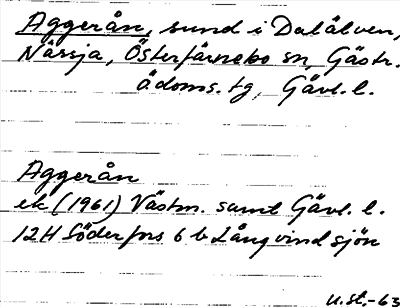 Aggerån, sund i Dalälven,
Närsja, Österfärnebo sn, Gästr.
ådoms. tg, Gävl. l.
Aggerån
ek (1961) Västm. samt Gävl. l.
12H Söderfors 6 b Långvindsjön
U.St.-63